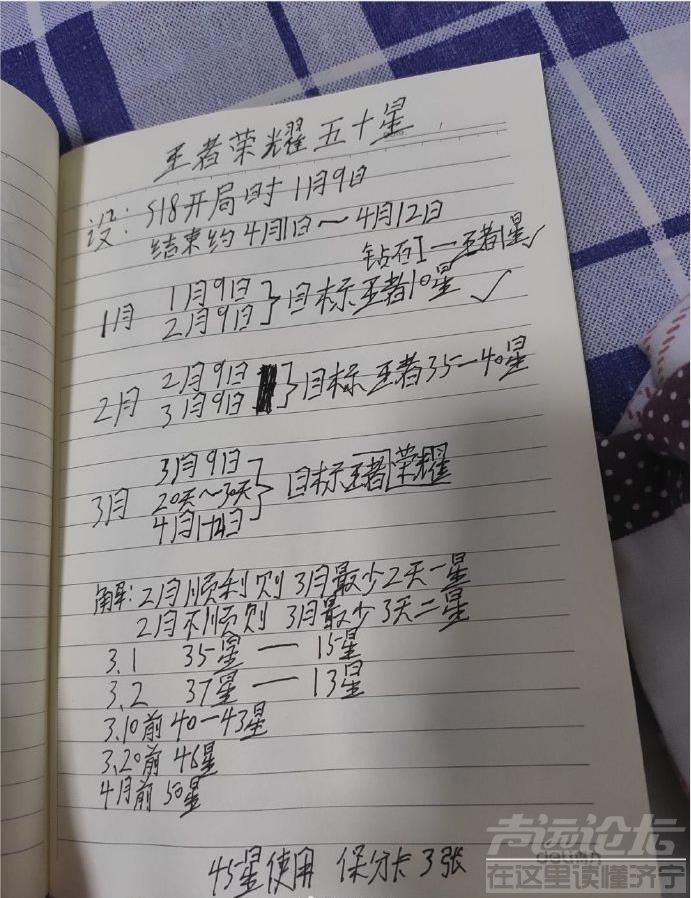 王者荣耀五十星
设: S18开局时 1月9日
结束约4月1日～4月12日
钻石I一王者1星✓
1月 1月9日
2月9日 }目标王者10星 ✓
2月 2月9日
3月9日 }目标王者35—40星
3月 3月9日
20天～30天 }目标王者荣耀
4月1-12日
解: 2月顺利则 3月最少2天一星
2月不顺则 3月最少3天二星
3.1 35星 — 15星
3.2 37星 — 13星
3.10前 40—43星
3.20前 46星
4月前 50星
45星使用 保分卡3张
声远论坛
在这里读懂济宁